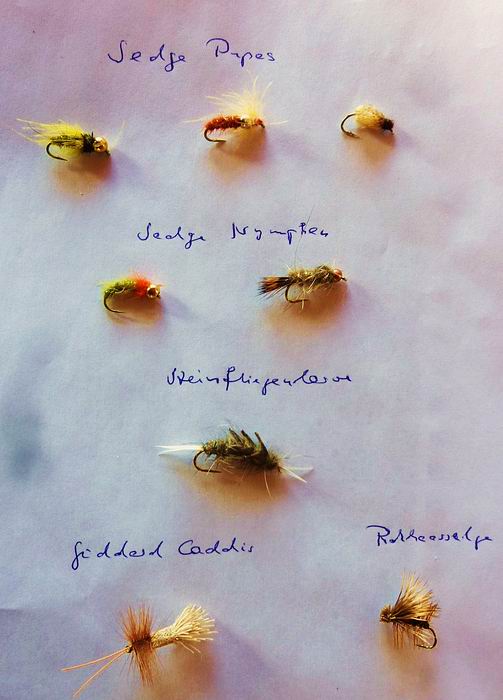 Sedge Pupas
Sedge Nymphen
Steinfliegenlarve
Goddard Caddis
Rehhaarsedge